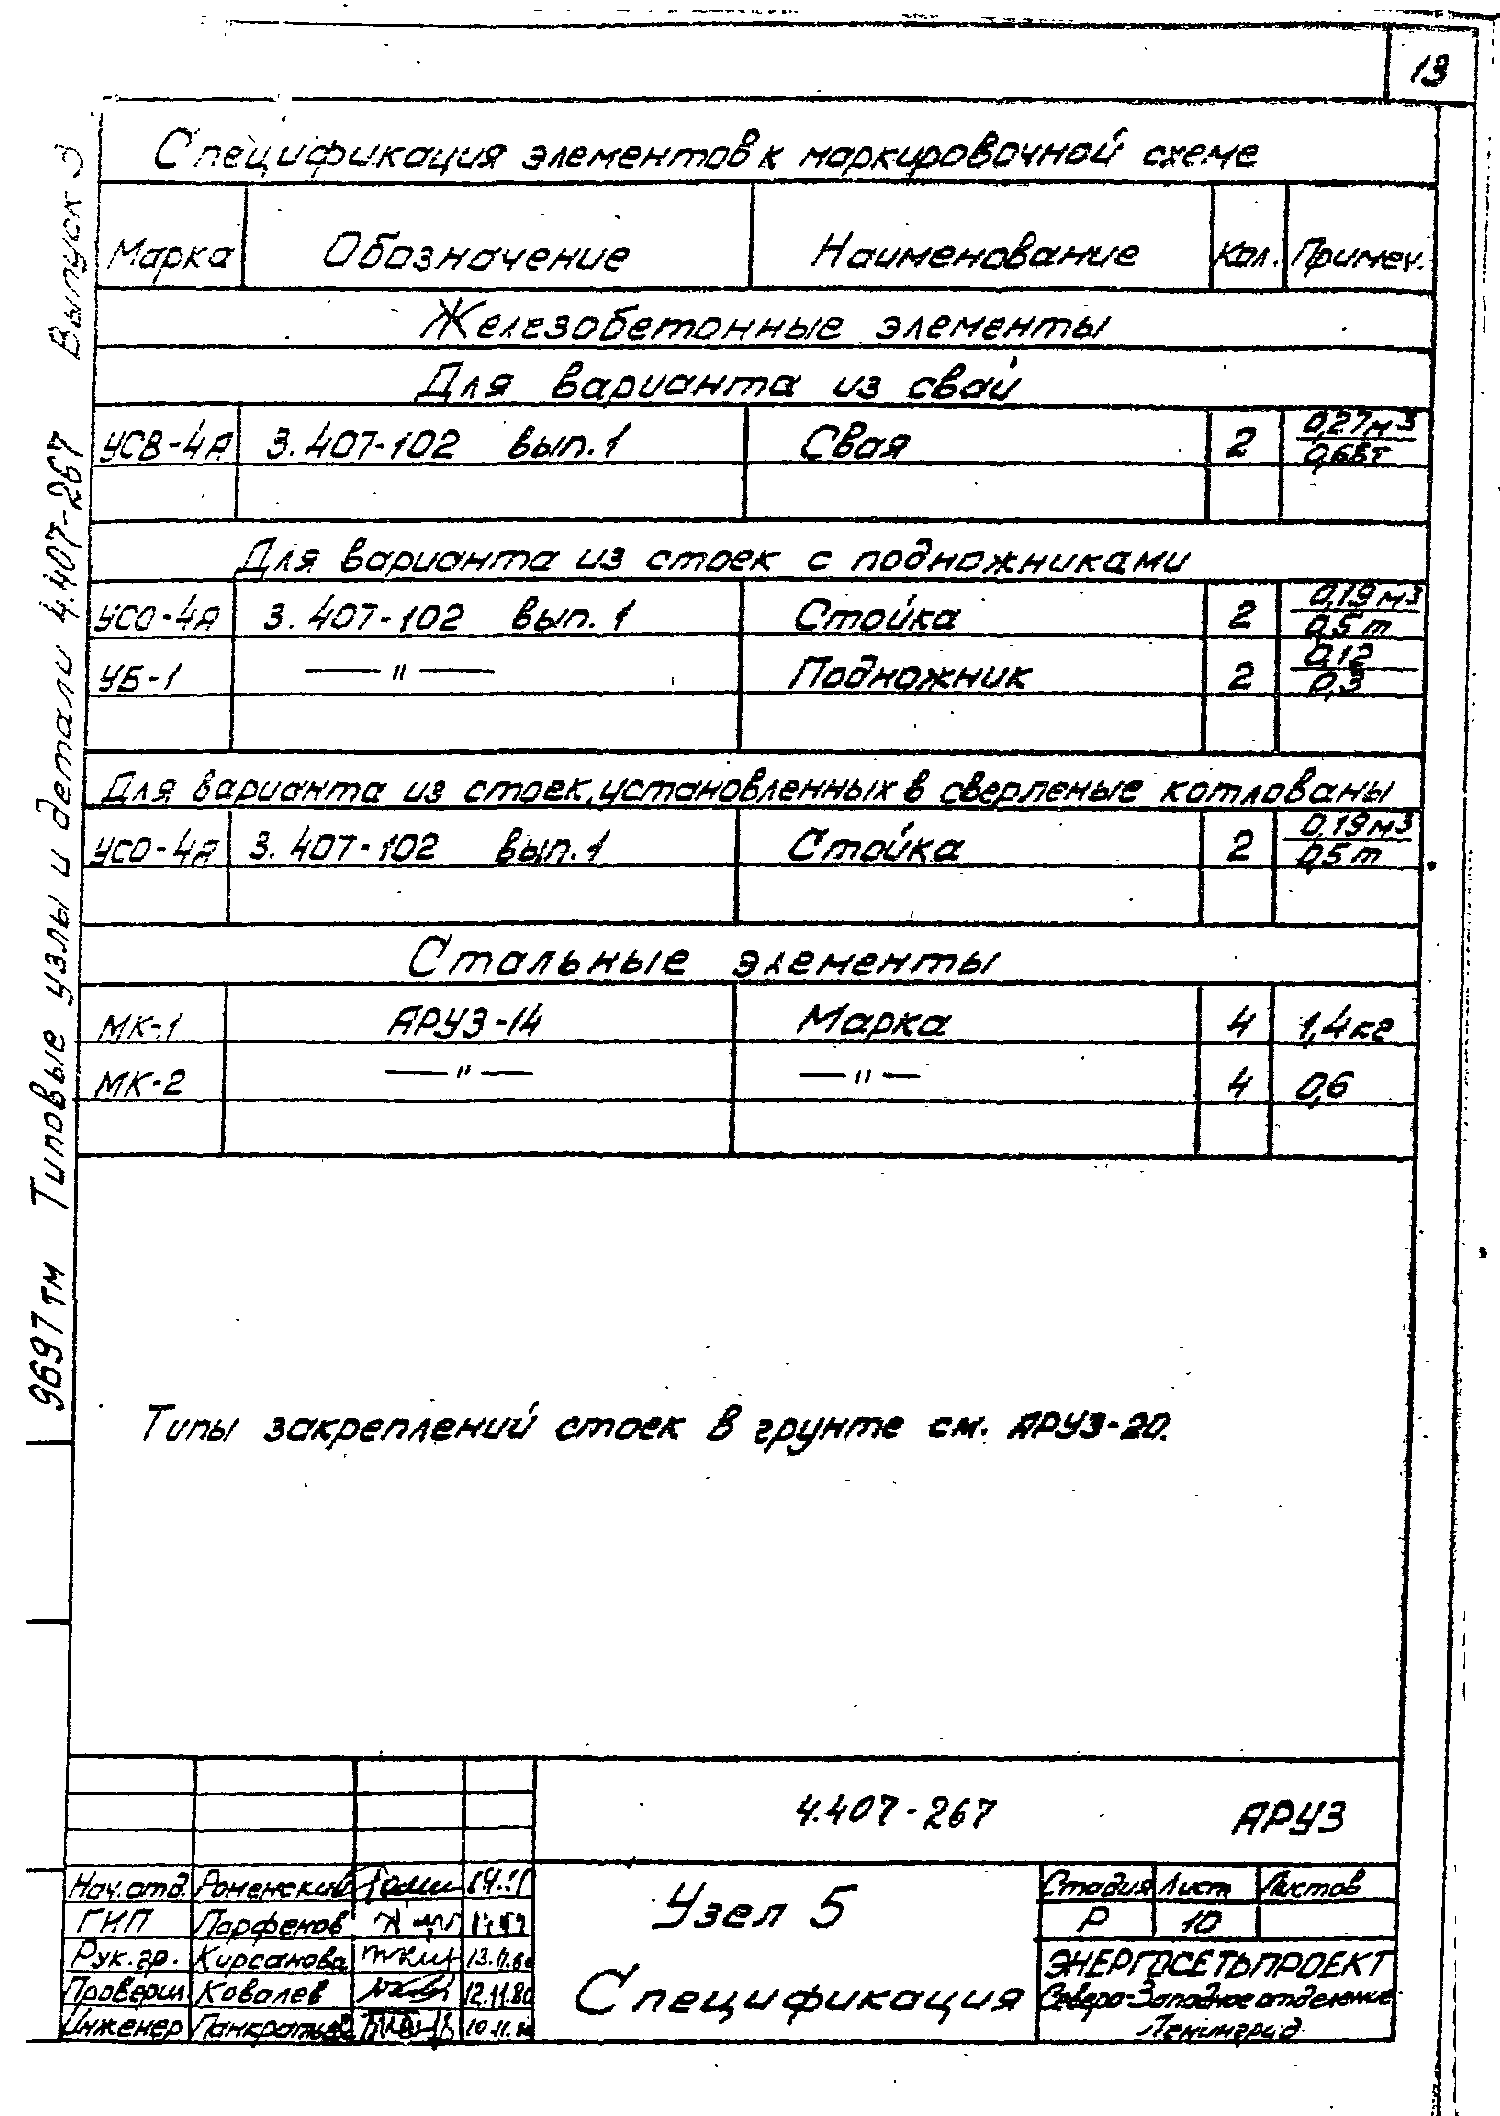 13
Спецификация элементов к маркировочной схеме
Марка Обозначение Наименование Кол. Примеч.
Железобетонные элементы
Для варианта из свай
УСВ-4А 3.407-102 вып.1 Свая 2 0,27м3
0,68т
Для варианта из стоек с подножниками
УСО-4А 3.407-102 вып.1 Стойка 2 0,19м3
0,5т
УБ-1 —〃— Подножник 2 0,12
0,3
Для варианта из стоек, установленных в сверленые котлованы
УСО-4А 3.407-102 вып.1 Стойка 2 0,19м3
0,5т
Стальные элементы
МК-1 АРУЗ-14 Марка 4 1,4кг
МК-2 —〃— —〃— 4 0,6
Типы закреплений стоек в грунте см. АРУЗ-20.
9697тм Типовые узлы и детали 4.407-267 Выпуск 3
4.407-267 АРУЗ
Нач.отд. Роменский
ГИП Парфенов
Рук.гр. Кирсанова
Проверил Ковалев 12.11.80
Инженер 10.11.80
Узел 5
Спецификация
Стадия Лист Листов
Р 10
ЭНЕРГОСЕТЬПРОЕКТ
Северо-Западное отделение
Ленинград